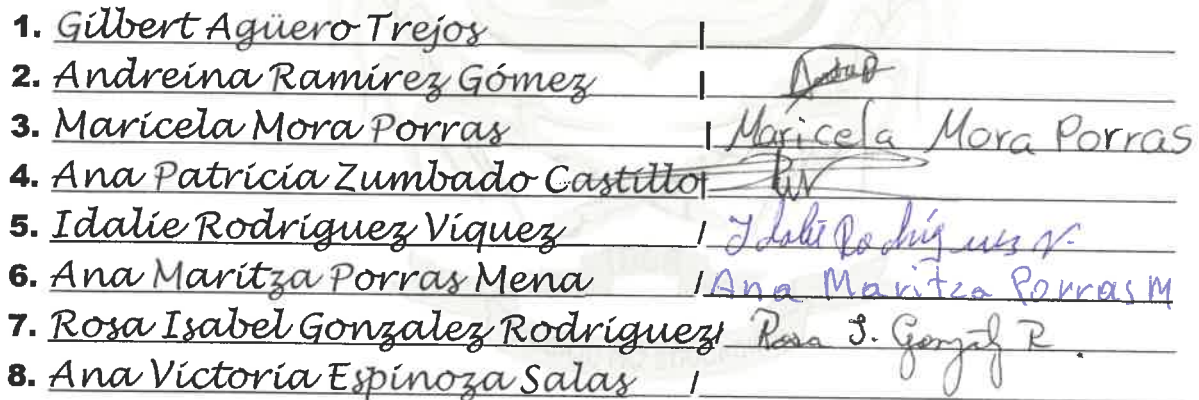 1. Gilbert Agüero Trejos |
2. Andreina Ramírez Gómez |
3. Maricela Mora Porras | Maricela Mora Porras
4. Ana Patricia Zumbado Castillo |
5. Idalie Rodríguez Víquez / Idalie Rodríguez V.
6. Ana Maritza Porras Mena / Ana Maritza Porras M
7. Rosa Isabel Gonzalez Rodríguez / Rosa I. Gonzalez R.
8. Ana Victoria Espinoza Salas /